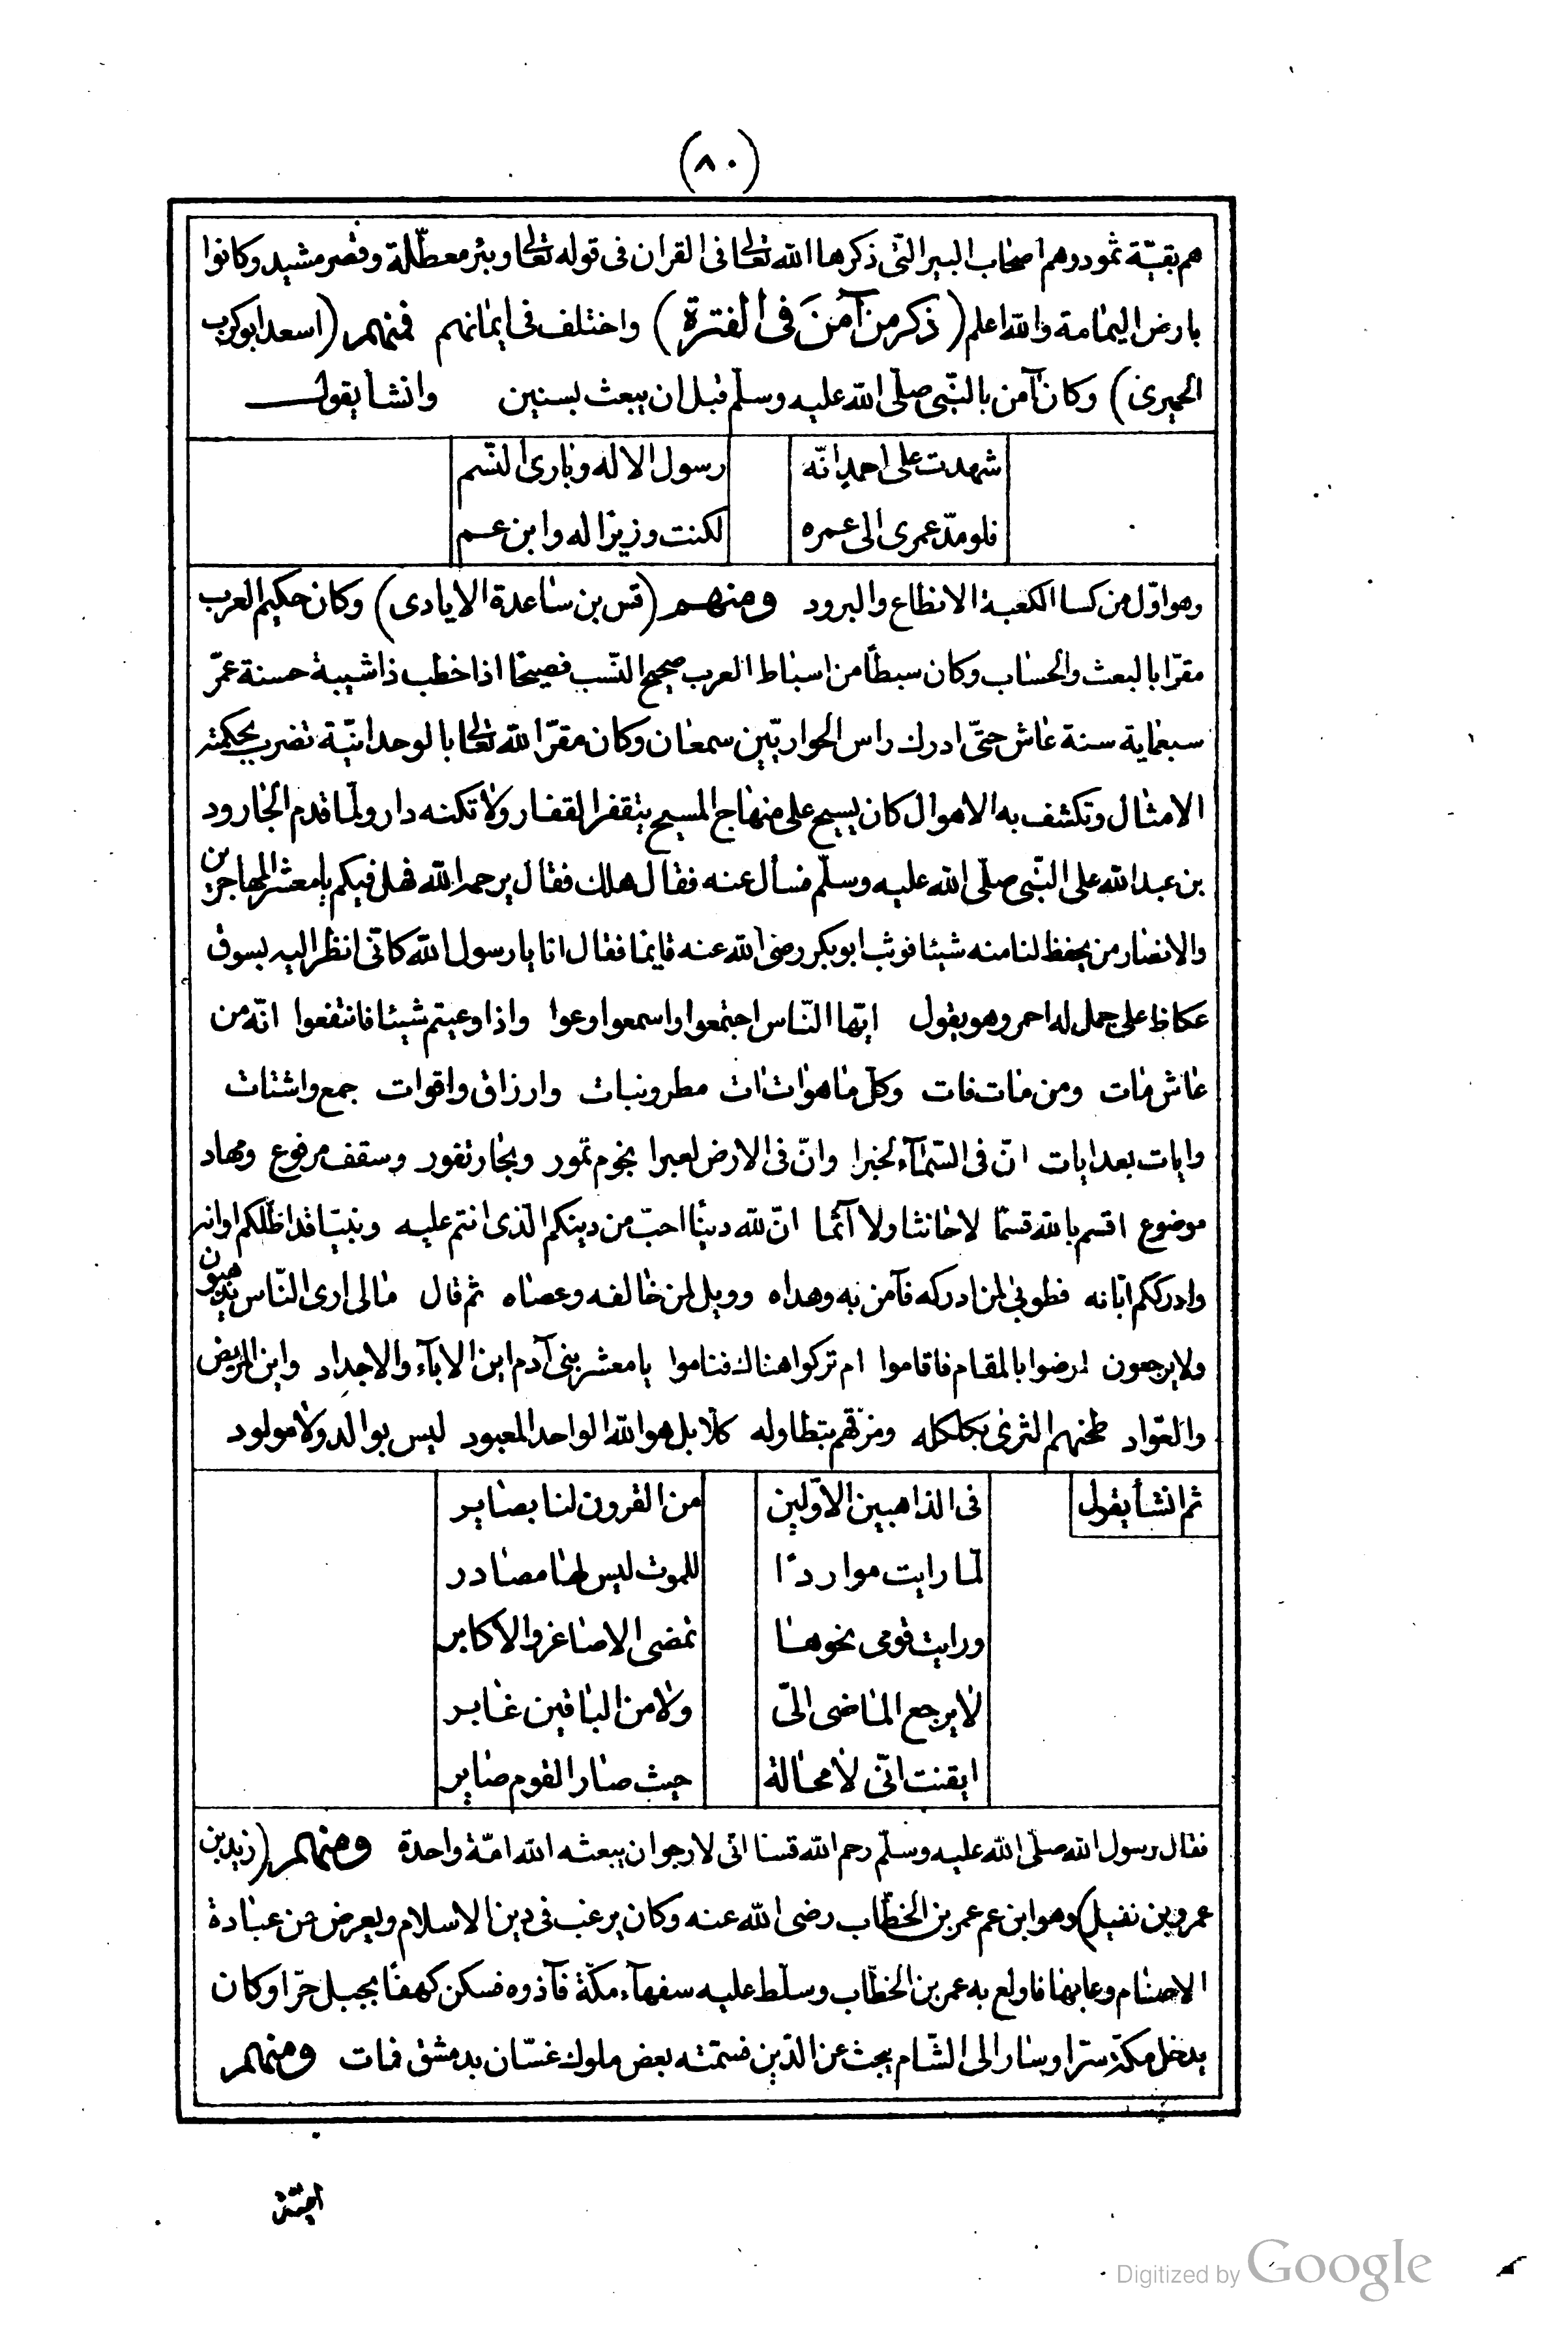 (٨٠)
هم بقيّة ثمود وهم اصحاب البير الّتى ذكرها الله تعالى فى القران فى قوله تعالى وبئر معطّلة وقصر مشيد وكانوا
بارض اليمامة والله اعلم (ذكر من آمن فى الفترة) واختلف فى ايمانهم فمنهم (اسعد ابو كرب
الحميرى) وكان آمن بالنّبى صلّى الله عليه وسلّم قبل ان يبعث بسنين وانشا يقول
شهدت على احمد انّه رسول الاله وبارى النّسم
فلو مدّ عمرى الى عمره لكنت وزيرا له وابن عم
وهو اوّل من كسا الكعبة الانطاع والبرود ومنهم (قس بن ساعدة الايادى) وكان حكيم العرب
مقرّا بالبعث والحساب وكان سبطًا من اسباط العرب صحيح النّسب فصيحًا اذا خطب ذا شيبة حسنة عمّر
سبعماية سنة عاش حتّى ادرك راس الحواريّين سمعان وكان مقرّا لله تعالى بالوحدانيّة تضرب بحكمته
الامثال وتكشف به الاهوال كان يسيح على منهاج المسيح يتقفر القفار ولا تكنه دار ولمّا قدم الجارود
بن عبد الله على النّبى صلّى الله عليه وسلّم فسأل عنه فقال هلك فقال يرحمه الله فهل فيكم يا معشر المهاجرين
والانصار من يحفظ لنا منه شيئا فوثب ابو بكر رضى الله عنه قايما فقال انا يا رسول الله كانّى انظر اليه بسوق
عكاظ على جمل له احمر وهو يقول ايّها النّاس اجتمعوا واسمعوا وعوا واذا وعيتم شيئا فانتفعوا انّه من
عاش مات ومن مات فات وكلّ ما هوات ات مطر ونبات وارزاق واقوات جمع واشتات
وايات بعد ايات انّ فى السّمآء لخبرا وانّ فى الارض لعبرا نجوم تمور وبحار تفور وسقف مرفوع ومهاد
موضوع اقسم بالله قسمًا لا حانثا ولا آثما انّ لله دينًا احبّ من دينكم الّذى انتم عليه ونبيّا قد اظلّكم اوانه
وادرككم ابّانه فطوبى لمن ادركه فآمن به وهداه وويل لمن خالفه وعصاه ثم قال مالى ارى النّاس يذهبون
ولا يرجعون ارضوا بالمقام فاقاموا ام تركوا هناك فناموا يا معشر بنى آدم اين الابآء والاجداد واين المريض
والعوّاد طحنهم الثرى بكلكله ومزّقهم بتطاوله كلّا بل هو الله الواحد المعبود ليس بوالد ولا مولود
ثم انشأ يقول فى الذاهبين الاوّلين من القرون لنا بصاير
لمّا رايت مواردًا للموت ليس لها مصادر
ورايت قومى نحوها تمضى الاصاغر والاكابر
لا يرجع الماضى الىّ ولا من الباقين غابر
ايقنت انّى لا محالة حيث صار القوم صاير
فقال رسول الله صلّى الله عليه وسلّم رحم الله قسا انّى لارجو ان يبعثه الله امّة واحدة ومنهم (زيد بن
عمرو بن نفيل) وهو ابن عم عمر بن الخطّاب رضى الله عنه وكان يرغب فى دين الاسلام ويعرض عن عبادة
الاصنام وعابها فاولع به عمر بن الخطّاب وسلّط عليه سفهآء مكّة فآذوه فسكن كهفًا بجبل حرّا وكان
يدخل مكّة سرّا وسار الى الشّام يبحث عن الدّين فسمّته بعض ملوك غسّان بدمشق فمات ومنهم
اميّة
Digitized by Google